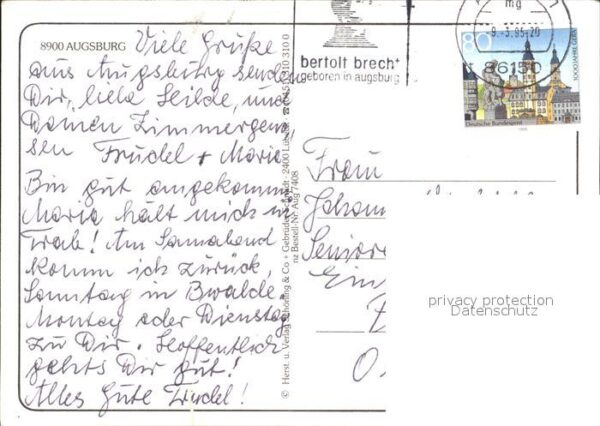 8900 AUGSBURG
Viele Grüße
aus Augsburg senden
Dir, liebe Hilde, und
Deinen Zimmergenos
sen Trudel + Maria
Bin gut angekommen
Maria hält mich in
Trab! Am Sonnabend
komm ich zurück,
Sonntag in Bwalde.
Montag oder Dienstag
zu Dir. Hoffentlich
gehts Dir gut!
Alles Gute Trudel!
© Herst. u. Verlag Schöning & Co + Gebrüder Schmidt · 2400 Lübeck
Bestell-Nr. Aug 7408
bertolt brecht
geboren in augsburg
mg
9.-3.95-20
86150
80
1000 JAHRE GERA
Deutsche Bundespost
Frau
Johann
Senior
Ein
O.
privacy protection
Datenschutz